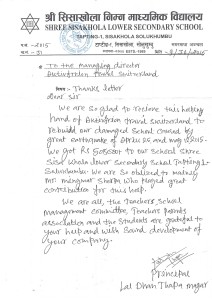 श्री सिसाखोला निम्न माध्यमिक विद्यालय
SHREE SISAKHOLA LOWER SECONDARY SCHOOL
TAPTING-1, SISAKHOLA SOLUKHUMBU
2015
To the managing director
Switzerland
Thanks letter
Dear sir
We are so glad to receive this helping
hand of Switzerland to
Rebuild our damaged School caused by
great earthquake of April 25 and may 2015.
We got to our School Shree
Sisa khola lower Secondary School Tapting-1
Solukhumbu. We are so obliged to making
Mr. Sherpa who played great
contribution for this help.
We are all, the Teachers, School
management committee, Teachers parents
association and the students are grateful to
your help and wish Sound development of
your company.
Principal
Lal Dhan Thapa magar